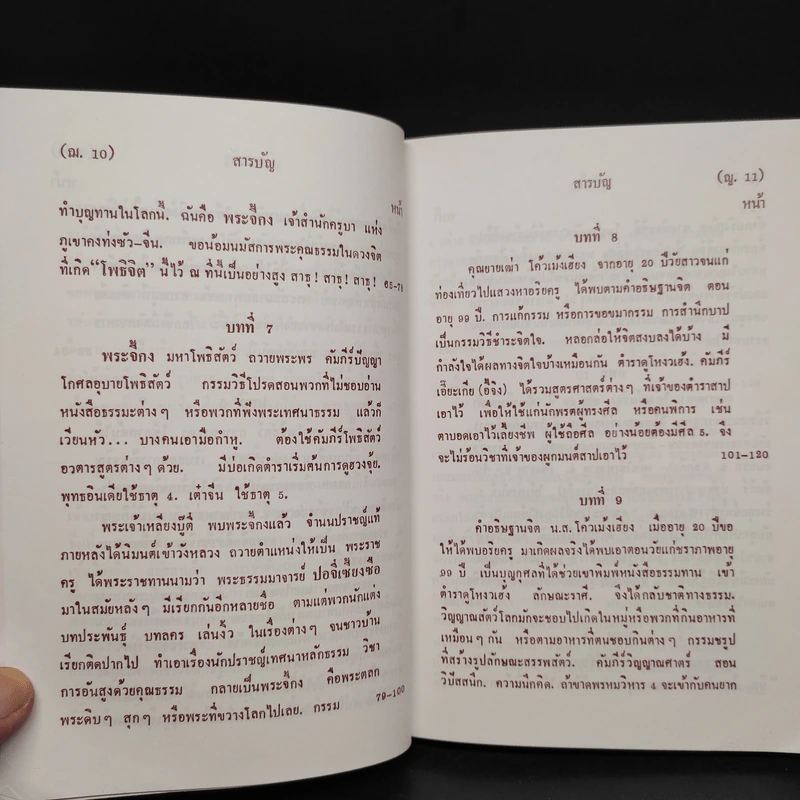 (ฌ. 10)
สารบัญ
หน้า
ทำบุญทานในโลกนี้. ฉันคือ พระจี้กง เจ้าสำนักครูบา แห่ง
ภูเขาคงท่งซัว-จีน. ขอน้อมนมัสการพระคุณธรรมในดวงจิต
ที่เกิด“โพธิจิต” นี้ไว้ ณ ที่นี้เป็นอย่างสูง สาธุ! สาธุ! สาธุ! 65-78
บทที่ 7
พระจี้กง มหาโพธิสัตว์ ถวายพระพร คัมภีร์ปัญญา
โกศลอุบายโพธิสัตว์ กรรมวิธีโปรดสอนพวกที่ไม่ชอบอ่าน
หนังสือธรรมะต่างๆ หรือพวกที่พึ่งพระเทศนาธรรม แล้วก็
เวียนหัว... บางคนเอามือกำหู. ต้องใช้คัมภีร์โพธิสัตว์
อวตารสูตรต่างๆ ด้วย. มีบ่อเกิดตำราเริ่มต้นการดูฮวงจุ้ย.
พุทธอินเดียใช้ธาตุ 4. เต๋าจีน ใช้ธาตุ 5.
พระเจ้าเหลียงบู๊ตี่ พบพระจี้กงแล้ว จำนนปราชญ์แท้
ภายหลังได้นิมนต์เข้าวังหลวง ถวายตำแหน่งให้เป็น พระราช
ครู ได้พระราชทานนามว่า พระธรรมมาจารย์ ปอจี่เซี้ยงซือ
มาในสมัยหลังๆ มีเรียกกันอีกหลายชื่อ ตามแต่พวกนักแต่ง
บทประพันธ์ุ บทลคร เล่นงิ้ว ในเรื่องต่างๆ จนชาวบ้าน
เรียกติดปากไป ทำเอาเรื่องนักปราชญ์เทศนาหลักธรรม วิชา
การอันสูงด้วยคุณธรรม กลายเป็นพระจี้กง คือพระตลก
พระดิบๆ สุกๆ หรือพระที่ขวางโลกไปเลย. กรรม 79-100
สารบัญ
(ญ. 11)
หน้า
บทที่ 8
คุณยายเฒ่า โค้วเม้งเฮียง จากอายุ 20 ปีวัยสาวจนแก่
ท่องเที่ยวไปแสวงหาอริยครู ได้พบตามคำอธิษฐานจิต ตอน
อายุ 99 ปี. การแก้กรรม หรือการขอขมากรรม การสำนึกบาป
เป็นกรรมวิธีชำระจิตใจ. หลอกล่อให้จิตสงบลงได้บ้าง มี
กำลังใจได้ผลทางจิตใจบ้างเหมือนกัน ตำราดูโหงวเฮ้ง. คัมภีร์
เอี๊ยะเกีย (อี้จิง) ได้รวมสูตรศาสตร์ต่างๆ ที่เจ้าของตำราสาป
เอาไว้ เพื่อให้ใช้แก่นักพรตผู้ทรงศีล หรือคนพิการ เช่น
ตาบอดเอาไว้เลี้ยงชีพ ผู้ใช้ถือศีล อย่างน้อยต้องมีศีล 5. จึง
จะไม่ร้อนวิชาที่เจ้าของผูกมนต์สาปเอาไว้ 101-120
บทที่ 9
คำอธิษฐานจิต น.ส.โค้วเม้งเฮียง เมื่ออายุ 20 ปีขอ
ให้ได้พบอริยครู มาเกิดผลจริงได้พบเอาตอนวัยแก่ชราภาพอายุ
99 ปี เป็นบุญกุศลที่ได้ช่วยเขาพิมพ์หนังสือธรรมทาน เข้า
ตำราดูโหงวเฮ้ง ลักษณะราศี. จึงได้กลับชาติทางธรรม.
วิญญาณสัตว์โลกมักจะชอบไปเกิดในหมู่หรือพวกที่กินอาหารที่
เหมือนๆ กัน หรือตามอาหารที่ตนชอบกินต่างๆ กรรมชรูป
ที่สร้างรูปลักษณะสรรพสัตว์. คัมภีร์วิญญาณศาตร์ สอน
วิปัสสนึก. ความนึกคิด. ถ้าขาดพรหมวิหาร 4 จะเข้ากับคนยาก